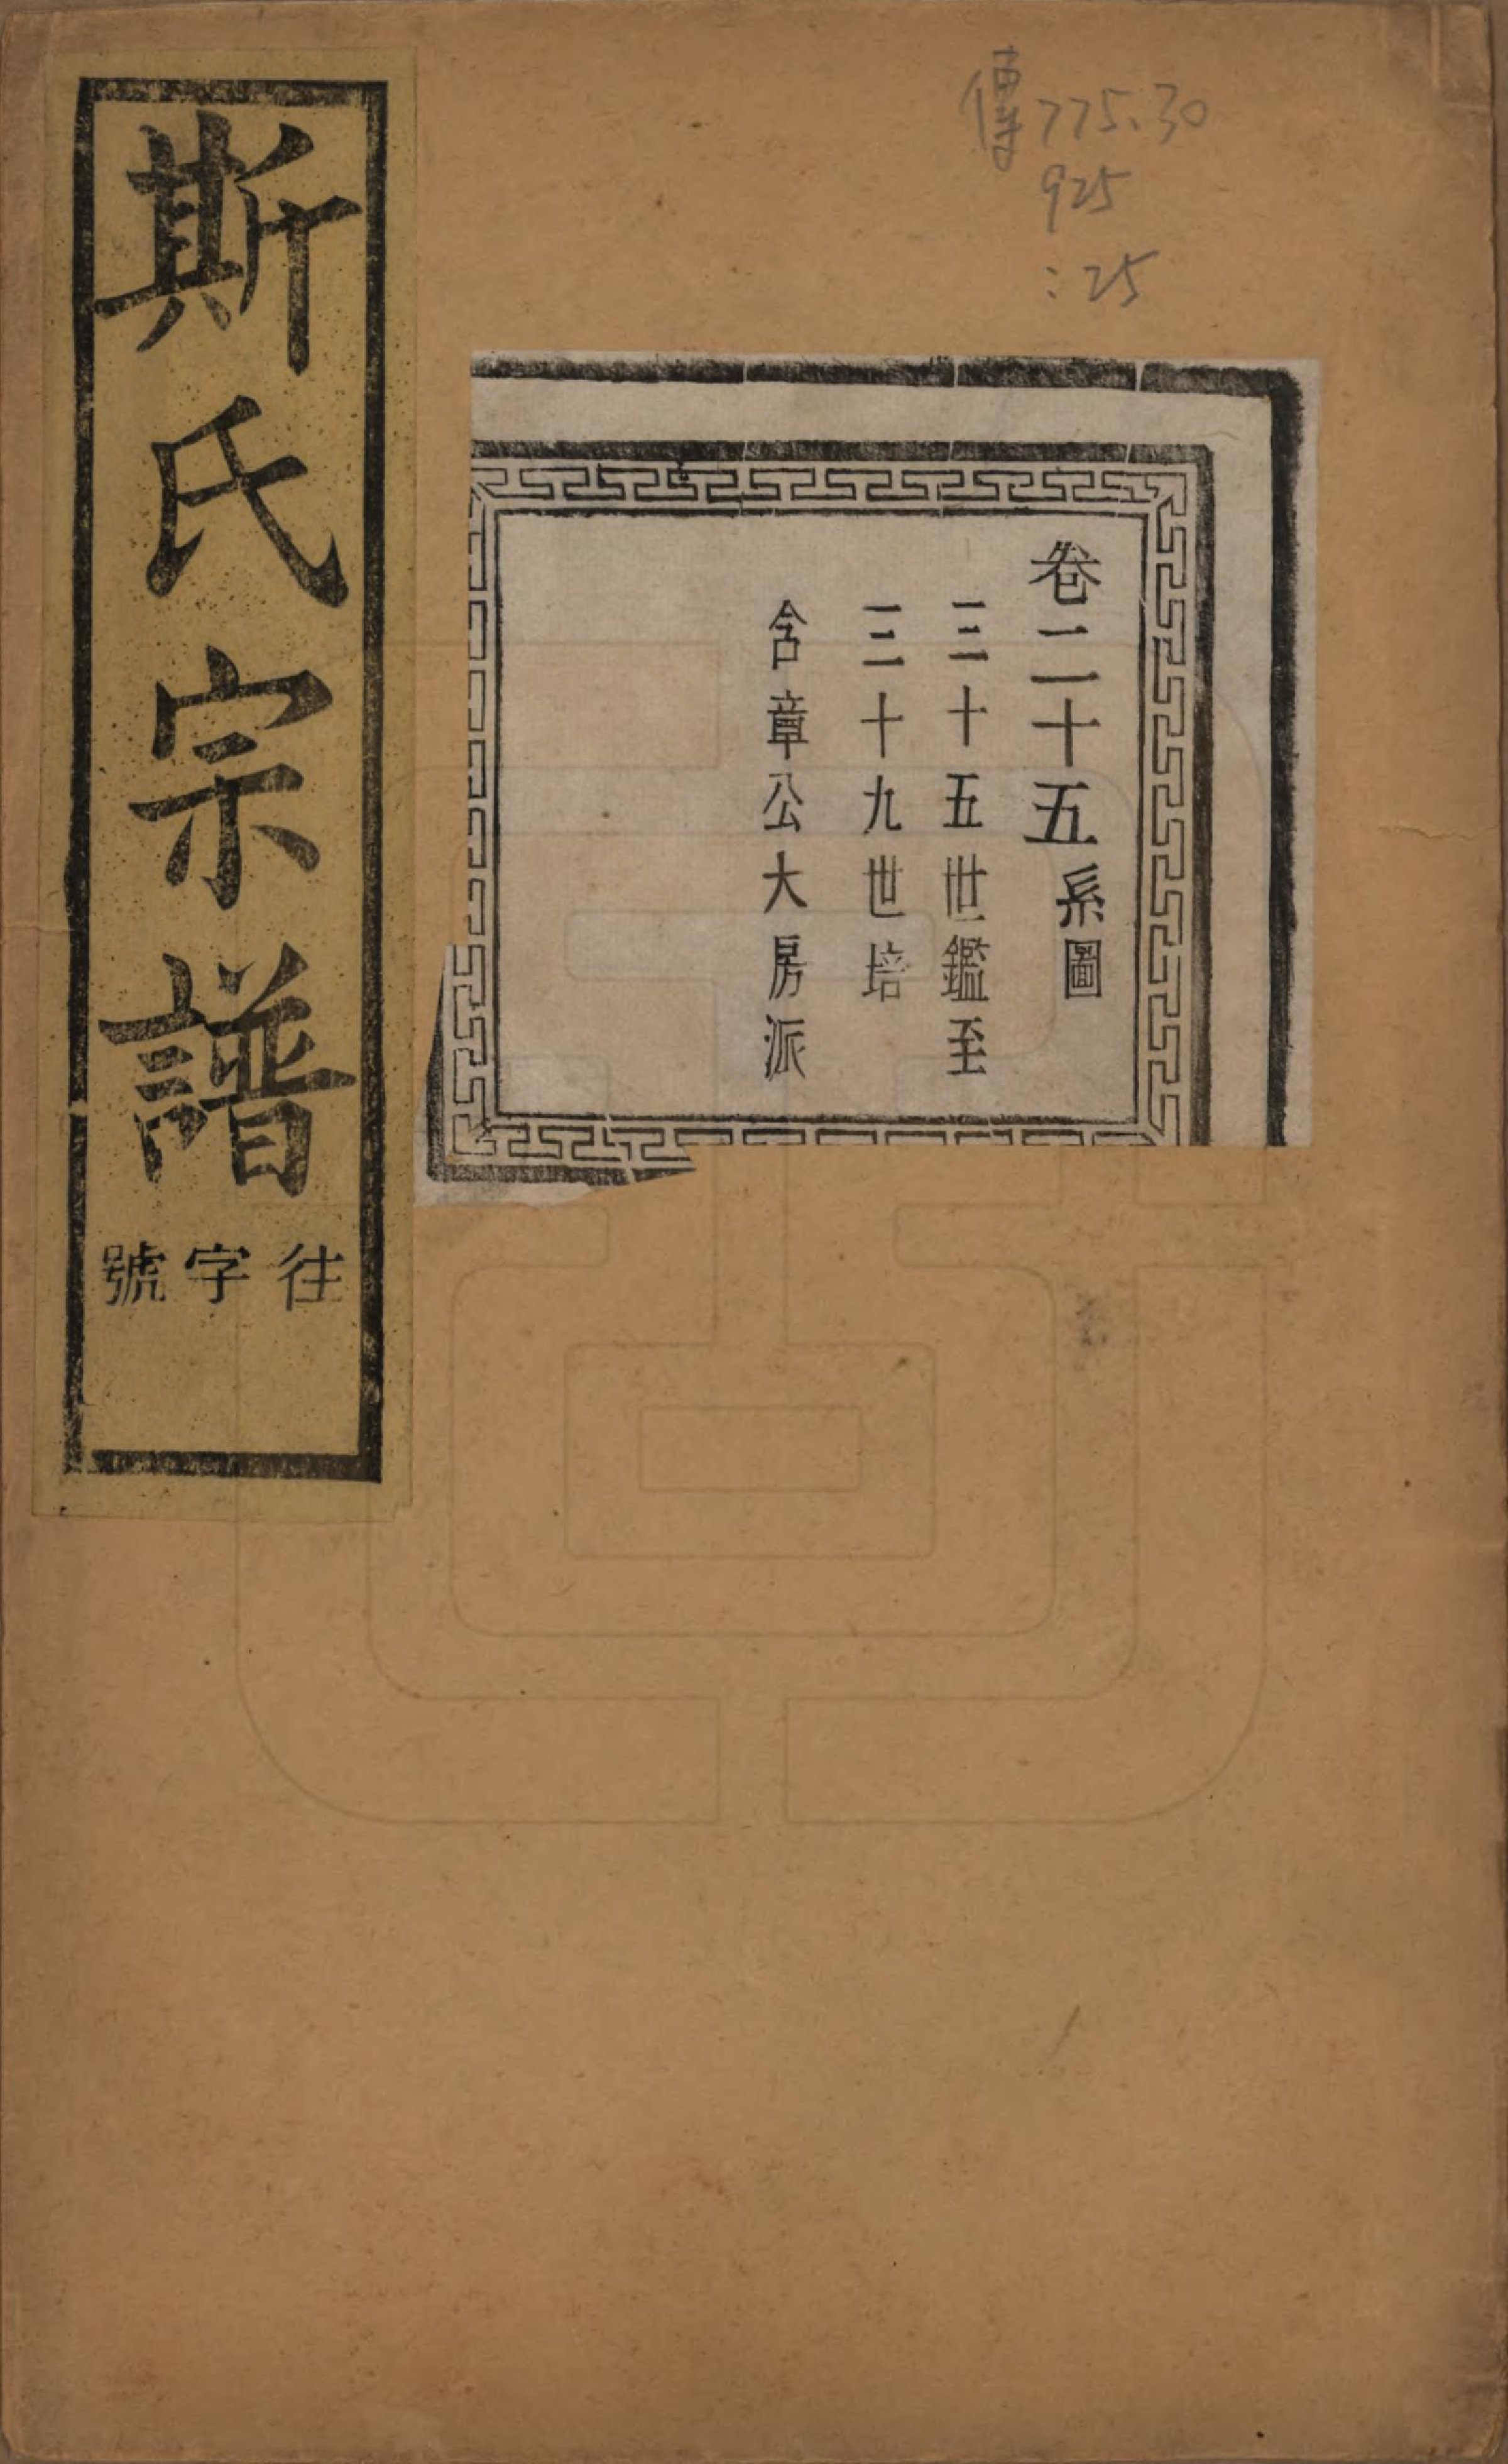 傳775.30
925
:25
卷二十五系圖
三十五世鑑至
三十九世培
含章公大房派
斯氏宗譜
往字號